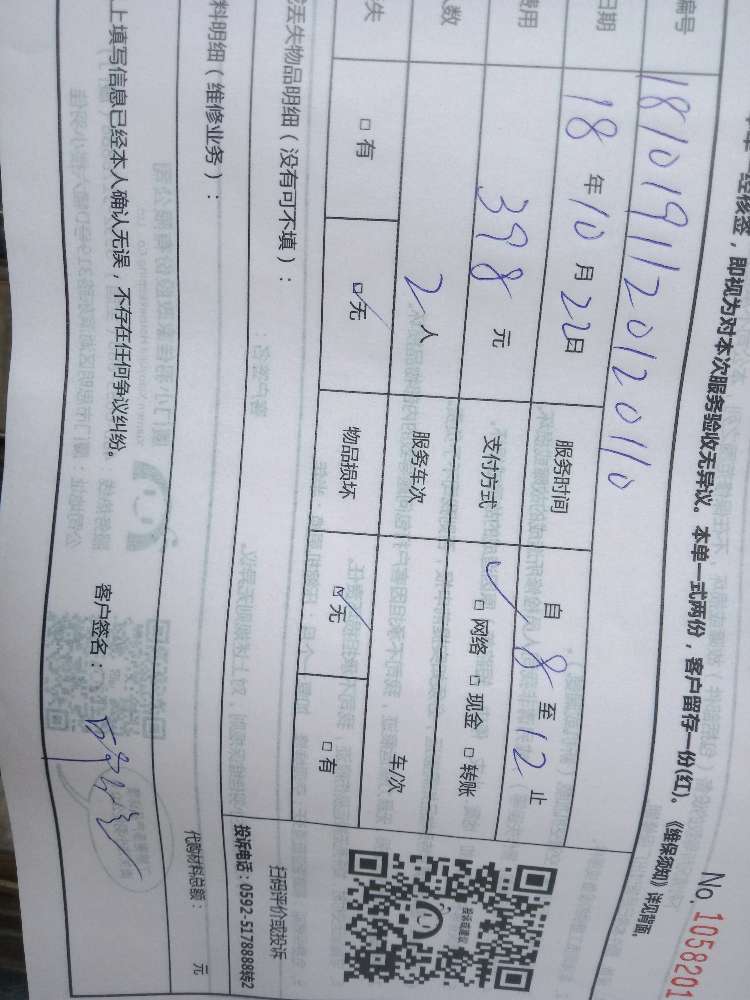 No. 1058201
经核签，即视为对本次服务验收无异议。本单一式两份，客户留存一份(红)。《维保须知》详见背面。
编号 181019112012010
日期 18年10月22日 服务时间 自8至12止
费用 398元 支付方式 ✓□网络 □现金 □转账
人数 2人 服务车次 车/次
失 □有 ☑无 物品损坏 ☑无 □有
丢失物品明细（没有可不填）：
扫码评价或投诉
投诉电话：0592-5178888转2
料明细（维修业务）：
代购材料总额： 元
上填写信息已经本人确认无误，不存在任何争议纠纷。 客户签名：